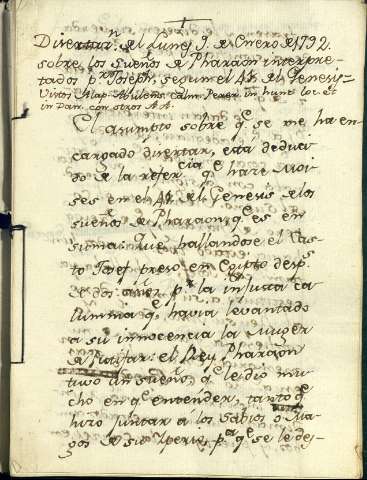 Disertan. del Lunes 9. de Enero de 1792.
sobre los Sueños de Pharaon interpre-
tados pr. Joseph, segun el 41. del Genesis =
hunc loc. et
in Dan. con otros A.A.
El asumpto sobre qe. se me ha en
cargado disertar, està deduci
do de la referCia. qe. hace Moi-
ses en el 41. del Genesis de los
sueños de Pharaon, qe. es en
suma: Que hallandose el Cas-
to Josef preso en Egipto desps.
de dos años, pr. la injusta ca
lumnia qe. havia levantado
a su innocencia la Muger
de Putifar: el Rey Pharaon
tuvo un sueño, qe. le diò mu
cho en qe. entender, tanto qe.
hizo juntar à los Sabios o Ma-
gos de su Ymperio, pa. qe. se le des-